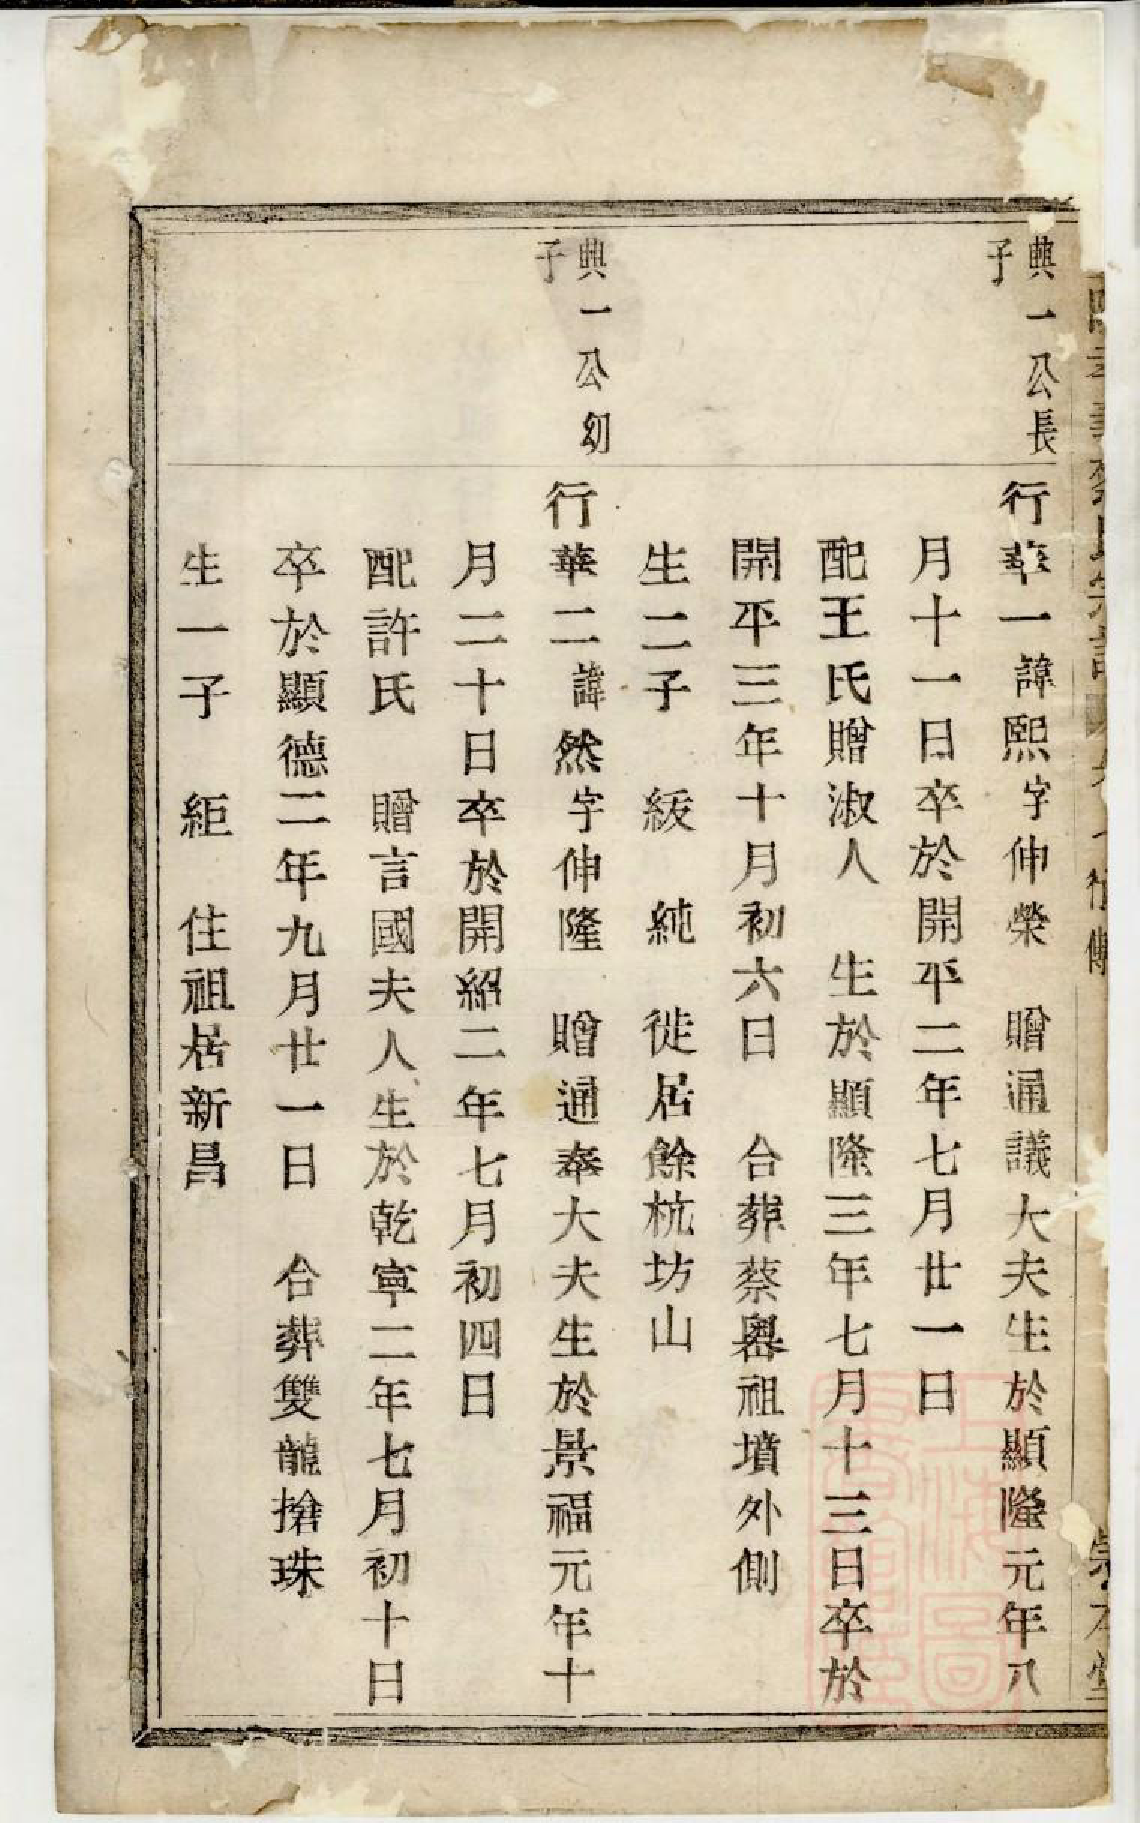 蔡氏宗譜
行傳
崇本堂
興一公長
子
行華一諱熙字伸榮　贈通議大夫生於顯隆元年八
月十一日卒於開平二年七月廿一日
配王氏贈淑人　生於顯隆三年七月十三日卒於
開平三年十月初六日　合葬蔡嶴祖墳外側
生二子　綏　純　徙居餘杭坊山
興一公幼
子
行華二諱然字伸隆　贈通奉大夫生於景福元年十
月二十日卒於開紹二年七月初四日
配許氏　贈言國夫人生於乾寧二年七月初十日
卒於顯德二年九月廿一日　合葬雙龍搶珠
生一子　絙　住祖居新昌
上海圖